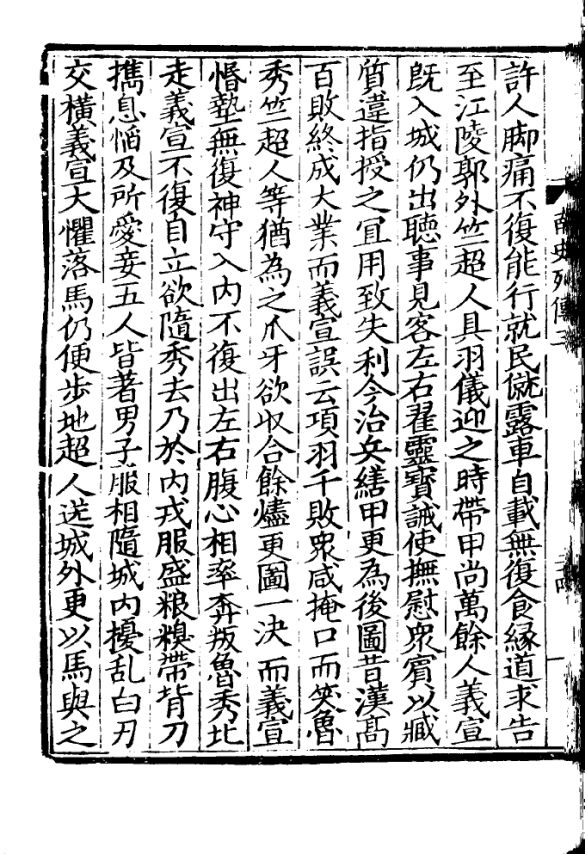 許人脚痛不復能行就民僦露車自載無復食縁道求告
至江陵郭外竺超人具羽儀迎之時帶甲尚萬餘人義宣
旣入城仍出聽事見客左右翟靈寳誡使撫慰衆賓以臧
質違指授之冝用致失利今治兵繕甲更為後圖昔漢髙
百敗終成大業而義宣誤云項羽千敗衆咸掩口而笑魯
秀竺超人等猶為之爪牙欲収合餘燼更圖一決而義宣
惛墊無復神守入内不復出左右腹心相率奔叛魯秀北
走義宣不復自立欲隨秀去乃於内戎服盛粮糗帶背刀
携息慆及所愛妾五人皆著男子服相隨城内擾乱白刃
交橫義宣大懼落馬仍便步地超人送城外更以馬與之